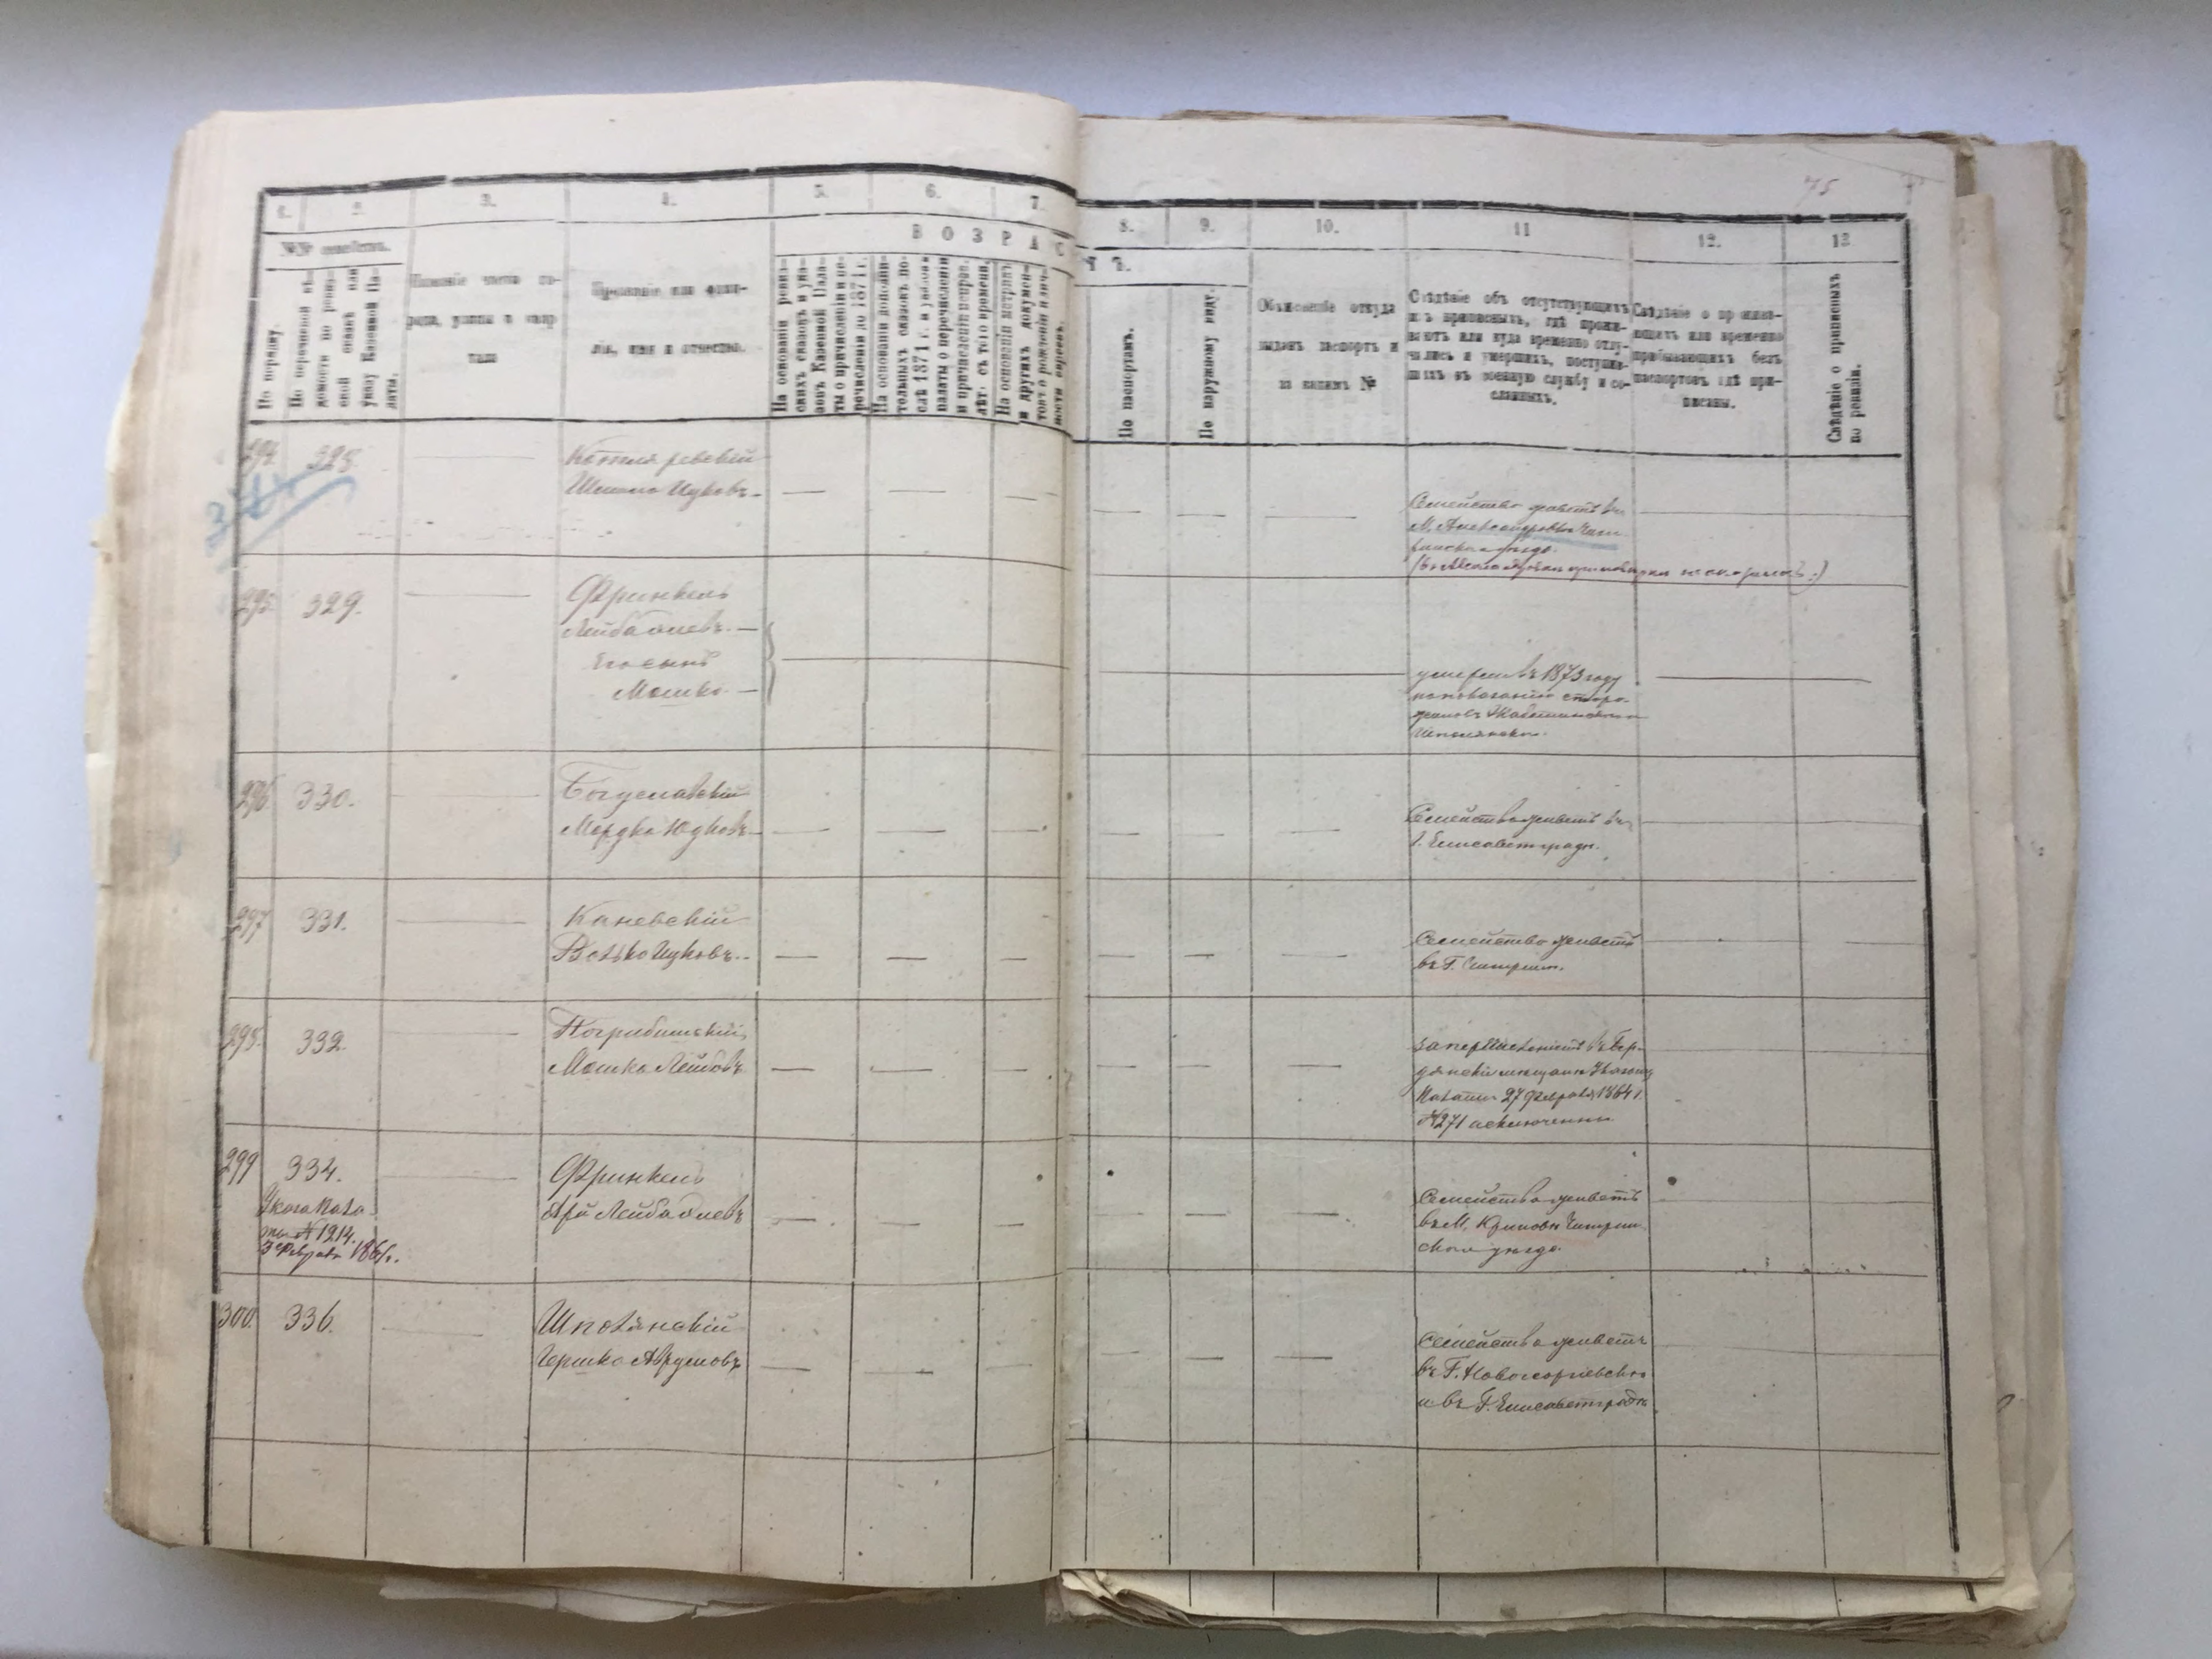 75
1. 2. 3. 4. 5. 6. 7. 8. 9. 10. 11 12. 13
ВОЗРАСТЪ.
№№ семейства.
По порядку.
Названіе части го-
рода, улицы и квар
тала
Прозваніе или фами-
лія, имя и отчество.
На основаніи ревиз-
скихъ сказокъ и ука-
зовъ Казенной Пала-
ты о причисленіи и пе-
речисленіи до 1871 г.
На основаніи дополни-
тельныхъ сказокъ по-
слѣ 1871 г. и указовъ
палаты о перечисленіи
и причисленіи
съ того времени.
На основаніи метрикъ
и другихъ докумен-
товъ о рожденіи и лич-
ности евреевъ.
По паспортамъ.
По наружному виду.
Объясненіе откуда
выданъ паспортъ и
за какимъ №
Свѣдѣніе объ отсутствующихъ
изъ приписныхъ, гдѣ прожи-
ваютъ или куда временно отлу-
чились и умершихъ, поступив-
шихъ въ военную службу и со-
сланныхъ.
Свѣдѣніе о проживаю-
щихъ или временно
пребывающихъ безъ
паспортовъ гдѣ при-
писаны.
Свѣдѣніе о приписныхъ
по ревизіи.
294 328.
Котляревскій
Шмило Ицковъ
Семейство живетъ въ
М. Александровкѣ Чиги
ринскаго уѣзда.
295. 329.
Фринкель
Лейба
Его сынъ
Мошко
умерли въ 1873 году
по показанію старо-
жиловъ
296 330.
Богуславскій
Мордко Юдковъ
Семейство живетъ въ
г. Елисаветградѣ.
297 331.
Каневскій
Волько Ицковъ
Семейство живетъ
въ Г. Чигирин.
298. 332.
Погрибинскій
Мошко Лейбовъ
за перечисленіемъ въ Бер-
дянскіе мещане Указомъ
Палаты 27 Февраля 1864 г.
№ 271 исключены
299 334.
Указа Пала
ты № 1214.
3 Февраля 186 г.
Фринкель
Арій Лейба
Семейство живетъ
въ М. Крыловѣ Чигирин
скаго уѣзда.
300. 336.
Шполянскій
Гершко Аврумовъ
Семейство живетъ
въ Г. Новогеоргіевскѣ
и въ Г. Елисаветградѣ